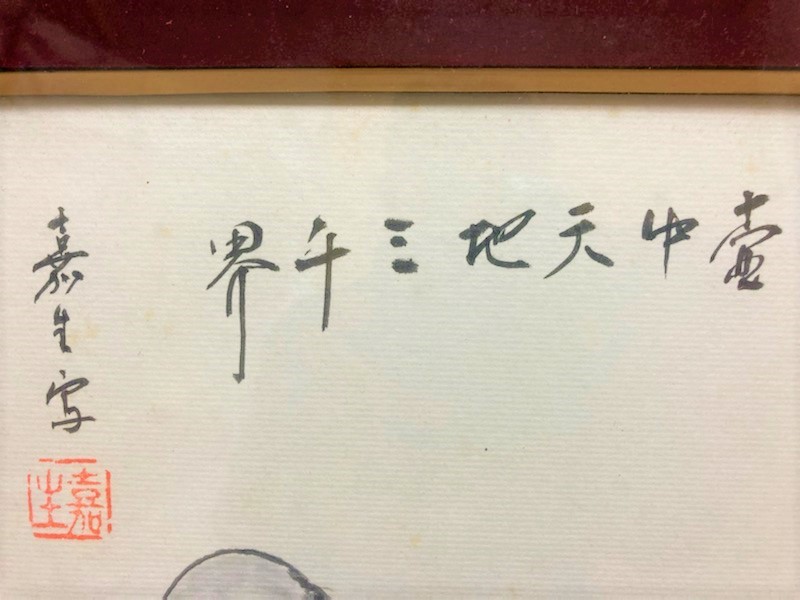 壷中天地三千界
嘉生写
嘉生